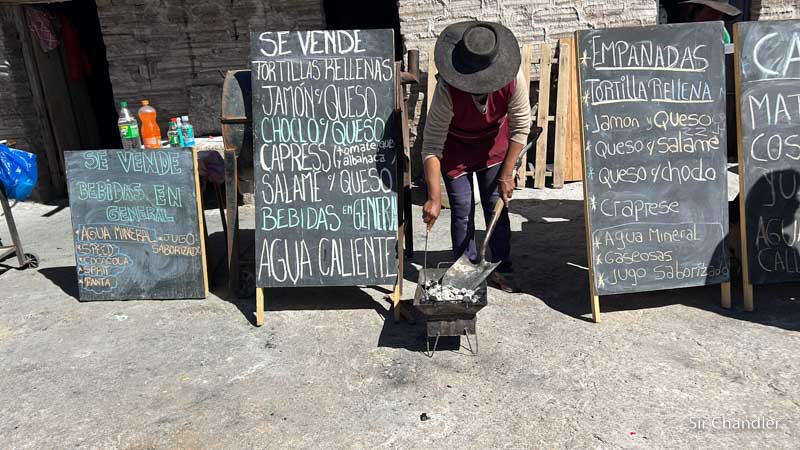 SE VENDE
BEBIDAS EN
GENERAL
*AGUA MINERAL *JUGO
*SPEED SABORIZADO
*COCACOLA
*SPRIT
*FANTA
SE VENDE
TORTILLAS RELLENAS
JAMÓN y QUESO
CHOCLO y QUESO
CAPRESS (+tomate queso
+albahaca
SALAME y QUESO
BEBIDAS EN GENERAL
AGUA CALIENTE
EMPANADAS
TORTILLA RELLENA
* Jamon y Queso
* Queso y Salame
* Queso y choclo
* Craprese
* Agua Mineral
* Gaseosas
* Jugo Saborizado
CA
MAT
COS
AGUA
Sir Chandler